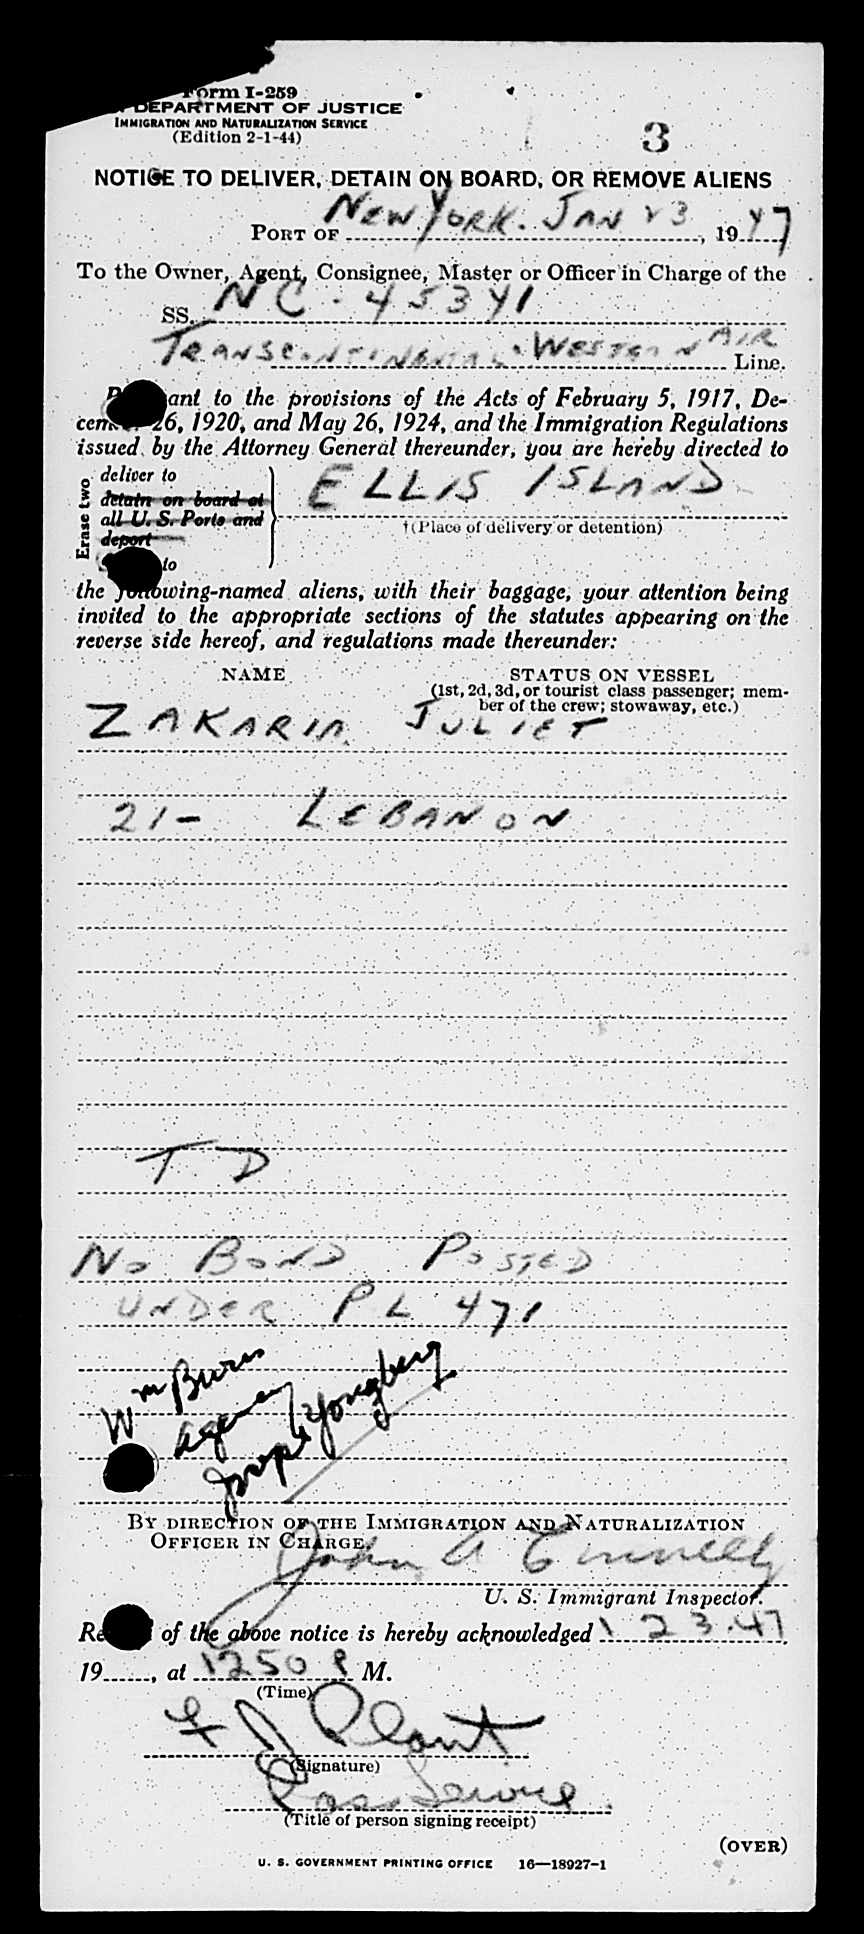 Form I-259
DEPARTMENT OF JUSTICE
IMMIGRATION AND NATURALIZATION SERVICE
(Edition 2-1-44)
3
NOTICE TO DELIVER, DETAIN ON BOARD, OR REMOVE ALIENS
PORT OF NEW YORK. JAN 23, 1947
To the Owner, Agent, Consignee, Master or Officer in Charge of the
SS. NC-45341
TRANSCONTINENTAL & WESTERN AIR Line.
ant to the provisions of the Acts of February 5, 1917, De-
cem 26, 1920, and May 26, 1924, and the Immigration Regulations
issued by the Attorney General thereunder, you are hereby directed to
Erase two
deliver to
detain on board at
all U. S. Ports and
deport
to
ELLIS ISLAND
†(Place of delivery or detention)
the following-named aliens, with their baggage, your attention being
invited to the appropriate sections of the statutes appearing on the
reverse side hereof, and regulations made thereunder:
NAME STATUS ON VESSEL
(1st, 2d, 3d, or tourist class passenger; mem-
ber of the crew; stowaway, etc.)
ZAKARIA JULIET
21- LEBANON
T D
NO BOND POSTED
UNDER PL 471
Wm Burns
Agency
Joseph Yongberg
BY DIRECTION OF THE IMMIGRATION AND NATURALIZATION
OFFICER IN CHARGE,
John A Connelly
U. S. Immigrant Inspector.
Re of the above notice is hereby acknowledged 1 23.47
19......, at 1250 P M.
(Time)
F J Plant
(Signature)
Pass Service.
(Title of person signing receipt)
(OVER)
U. S. GOVERNMENT PRINTING OFFICE 16—18927-1